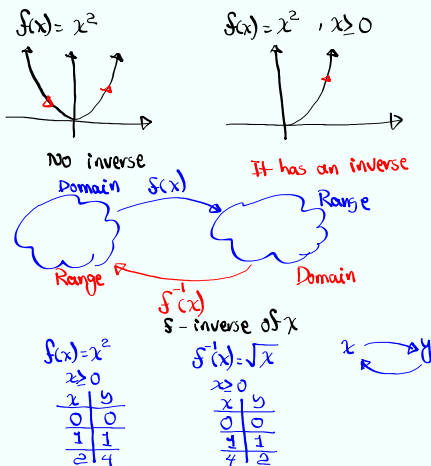 f(x) = x²
f(x) = x² , x ≥ 0
No inverse
It has an inverse
Domain
f(x)
Range
Range
Domain
f⁻¹(x)
f - inverse of x
f(x) = x²
x ≥ 0
x y
0 0
1 1
2 4
f⁻¹(x) = √x
x ≥ 0
x y
0 0
1 1
4 2
x y